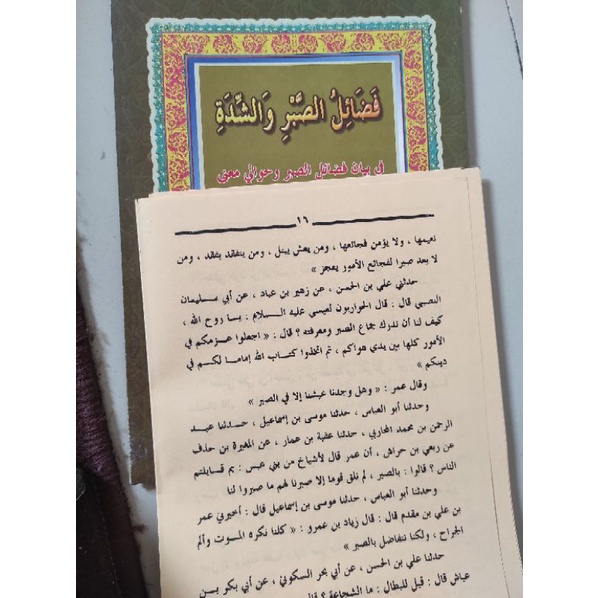 فَضَائِلُ الصَّبْرِ وَالشِّدَّةِ
في بيان فضائل الصبر وحوالي معنى
١٦
نعيمها ، ولا يؤمن فجائعها ، ومن يعش يبتل ، ومن يتفقد يفقد ، ومن
لا يعد صبرا لفجائع الأمور يعجز »
حدثني علي بن الحسن ، عن زهير بن عباد ، عن أبي سليمان
النصيبي قال : قال الحواريون لعيسى عليه السلام : يا روح الله ،
كيف لنا أن ندرك جماع الصبر ومعرفته ؟ قال : « اجعلوا عزمكم في
الأمور كلها بين يدي هواكم ، ثم اتخذوا كتاب الله إماما لكم في
دينكم »
وقال عمر : « وهل وجدنا عيشنا إلا في الصبر »
وحدثنا أبو العباس ، حدثنا موسى بن إسماعيل ، حدثنا عبد
الرحمن بن محمد المحاربي ، حدثنا عقبة بن عمار ، عن المغيرة بن حذف
عن ربعي بن حراش ، أن عمر قال لأشياخ من بني عبس : بم قابلتم
الناس ؟ قالوا : بالصبر ، لم نلق قوما إلا صبرنا لهم ما صبروا لنا
وحدثنا أبو العباس ، حدثنا موسى بن إسماعيل قال : أخبرني عمر
بن علي بن مقدم قال : قال زياد بن عمرو : « كلنا نكره الموت وألم
الجراح ، ولكنا نتفاضل بالصبر »
حدثنا علي بن الحسن ، عن أبي بحر السكوني ، عن أبي بكر بن
عياش قال : قيل للبطال : ما الشجاعة ؟ قال